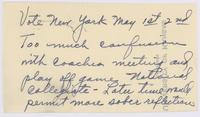 Vote New York May 1st 2nd
Too much confusion
with coaches meeting and
play off games - National
collegiate - Later time would
permit more sober reflection